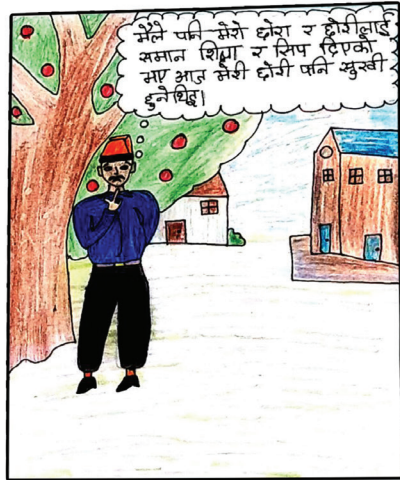 मैले पनि मेरो छोरा र छोरीलाई
समान शिक्षा र सिप दिएको
भए आज मेरी छोरी पनि सुखी
हुनेथिइ।